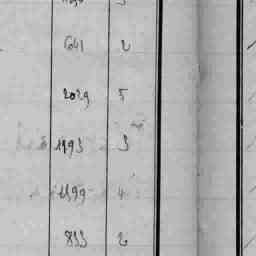 641 2
2029 5
1193 3
1199 4
833 2